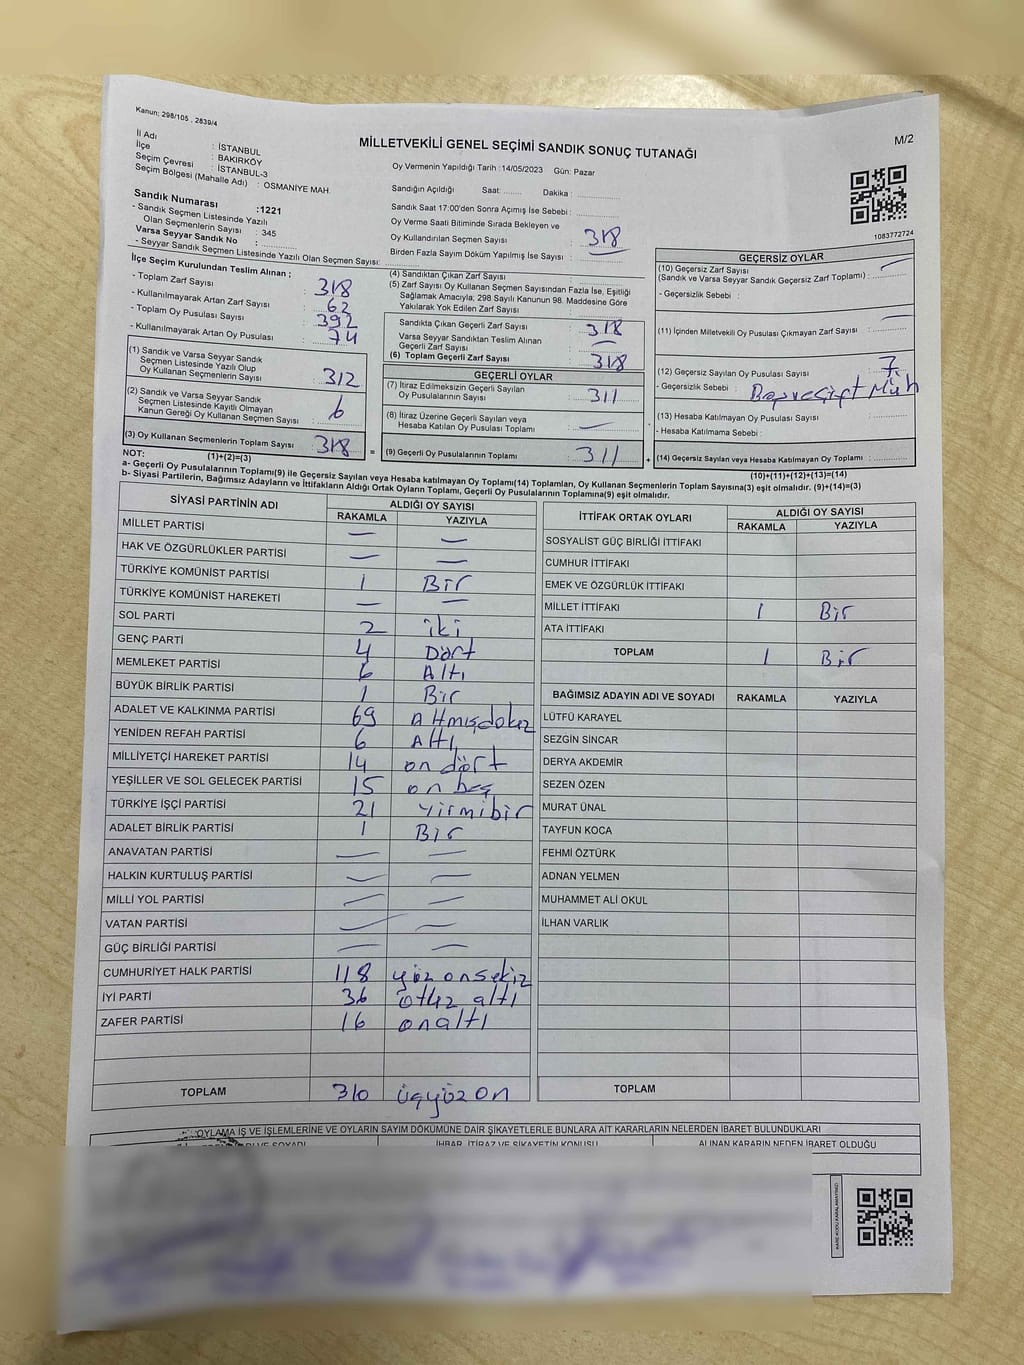 Kanun; 298/105 , 2839/4
MİLLETVEKİLİ GENEL SEÇİMİ SANDIK SONUÇ TUTANAĞI
M/2
İl Adı : İSTANBUL
İlçe : BAKIRKÖY
Seçim Çevresi : İSTANBUL-3
Seçim Bölgesi (Mahalle Adı) : OSMANİYE MAH.
Sandık Numarası :1221
- Sandık Seçmen Listesinde Yazılı
Olan Seçmenlerin Sayısı : 345
Varsa Seyyar Sandık No :
- Seyyar Sandık Seçmen Listesinde Yazılı Olan Seçmen Sayısı:
Oy Vermenin Yapıldığı Tarih :14/05/2023 Gün: Pazar
Sandığın Açıldığı Saat: Dakika :
Sandık Saat 17:00'den Sonra Açımış İse Sebebi :
Oy Verme Saati Bitiminde Sırada Bekleyen ve
Oy Kullandırılan Seçmen Sayısı : 318
Birden Fazla Sayım Döküm Yapılmış İse Sayısı :
1083772724
İlçe Seçim Kurulundan Teslim Alınan ;
- Toplam Zarf Sayısı : 318
- Kullanılmayarak Artan Zarf Sayısı : 62
- Toplam Oy Pusulası Sayısı : 392
- Kullanılmayarak Artan Oy Pusulası : 74
(1) Sandık ve Varsa Seyyar Sandık
Seçmen Listesinde Yazılı Olup
Oy Kullanan Seçmenlerin Sayısı : 312
(2) Sandık ve Varsa Seyyar Sandık
Seçmen Listesinde Kayıtlı Olmayan
Kanun Gereği Oy Kullanan Seçmen Sayısı : 6
(3) Oy Kullanan Seçmenlerin Toplam Sayısı : 318
(1)+(2)=(3)
(4) Sandıktan Çıkan Zarf Sayısı :
(5) Zarf Sayısı Oy Kullanan Seçmen Sayısından Fazla İse, Eşitliği
Sağlamak Amacıyla; 298 Sayılı Kanunun 98. Maddesine Göre
Yakılarak Yok Edilen Zarf Sayısı :
Sandıkta Çıkan Geçerli Zarf Sayısı : 318
Varsa Seyyar Sandıktan Teslim Alınan
Geçerli Zarf Sayısı : —
(6) Toplam Geçerli Zarf Sayısı : 318
GEÇERLİ OYLAR
(7) İtiraz Edilmeksizin Geçerli Sayılan
Oy Pusulalarının Sayısı : 311
(8) İtiraz Üzerine Geçerli Sayılan veya
Hesaba Katılan Oy Pusulası Toplamı : —
= (9) Geçerli Oy Pusulalarının Toplamı : 311
GEÇERSİZ OYLAR
(10) Geçersiz Zarf Sayısı
(Sandık ve Varsa Seyyar Sandık Geçersiz Zarf Toplamı) : —
- Geçersizlik Sebebi :
(11) İçinden Milletvekili Oy Pusulası Çıkmayan Zarf Sayısı : —
(12) Geçersiz Sayılan Oy Pusulası Sayısı : 7
- Geçersizlik Sebebi :
(13) Hesaba Katılmayan Oy Pusulası Sayısı :
- Hesaba Katılmama Sebebi :
+ (14) Geçersiz Sayılan veya Hesaba Katılmayan Oy Toplamı :
(10)+(11)+(12)+(13)=(14)
NOT:
a- Geçerli Oy Pusulalarının Toplamı(9) ile Geçersiz Sayılan veya Hesaba katılmayan Oy Toplamı(14) Toplamları, Oy Kullanan Seçmenlerin Toplam Sayısına(3) eşit olmalıdır. (9)+(14)=(3)
b- Siyasi Partilerin, Bağımsız Adayların ve İttifakların Aldığı Ortak Oyların Toplamı, Geçerli Oy Pusulalarının Toplamına(9) eşit olmalıdır.
SİYASİ PARTİNİN ADI ALDIĞI OY SAYISI
RAKAMLA YAZIYLA
MİLLET PARTİSİ — —
HAK VE ÖZGÜRLÜKLER PARTİSİ — —
TÜRKİYE KOMÜNİST PARTİSİ 1 Bir
TÜRKİYE KOMÜNİST HAREKETİ — —
SOL PARTİ 2 iki
GENÇ PARTİ 4 Dört
MEMLEKET PARTİSİ 6 Altı
BÜYÜK BİRLİK PARTİSİ 1 Bir
ADALET VE KALKINMA PARTİSİ 69 Altmışdokuz
YENİDEN REFAH PARTİSİ 6 Altı
MİLLİYETÇİ HAREKET PARTİSİ 14 on dört
YEŞİLLER VE SOL GELECEK PARTİSİ 15 on beş
TÜRKİYE İŞÇİ PARTİSİ 21 yirmibir
ADALET BİRLİK PARTİSİ 1 Bir
ANAVATAN PARTİSİ — —
HALKIN KURTULUŞ PARTİSİ — —
MİLLİ YOL PARTİSİ — —
VATAN PARTİSİ — —
GÜÇ BİRLİĞİ PARTİSİ — —
CUMHURİYET HALK PARTİSİ 118 yüz onsekiz
İYİ PARTİ 36 otuz altı
ZAFER PARTİSİ 16 onaltı
TOPLAM 310 üçyüz on
İTTİFAK ORTAK OYLARI ALDIĞI OY SAYISI
RAKAMLA YAZIYLA
SOSYALİST GÜÇ BİRLİĞİ İTTİFAKI
CUMHUR İTTİFAKI
EMEK VE ÖZGÜRLÜK İTTİFAKI
MİLLET İTTİFAKI 1 Bir
ATA İTTİFAKI
TOPLAM 1 Bir
BAĞIMSIZ ADAYIN ADI VE SOYADI RAKAMLA YAZIYLA
LÜTFÜ KARAYEL
SEZGİN SİNCAR
DERYA AKDEMİR
SEZEN ÖZEN
MURAT ÜNAL
TAYFUN KOCA
FEHMİ ÖZTÜRK
ADNAN YELMEN
MUHAMMET ALİ OKUL
İLHAN VARLIK
TOPLAM
OYLAMA İŞ VE İŞLEMLERİNE VE OYLARIN SAYIM DÖKÜMÜNE DAİR ŞİKAYETLERLE BUNLARA AİT KARARLARIN NELERDEN İBARET BULUNDUKLARI
VE SOYADI İHBAR, İTİRAZ VE ŞİKAYETİN KONUSU ALINAN KARARIN NEDEN İBARET OLDUĞU
KARE KODU KARALAMAYINIZ!